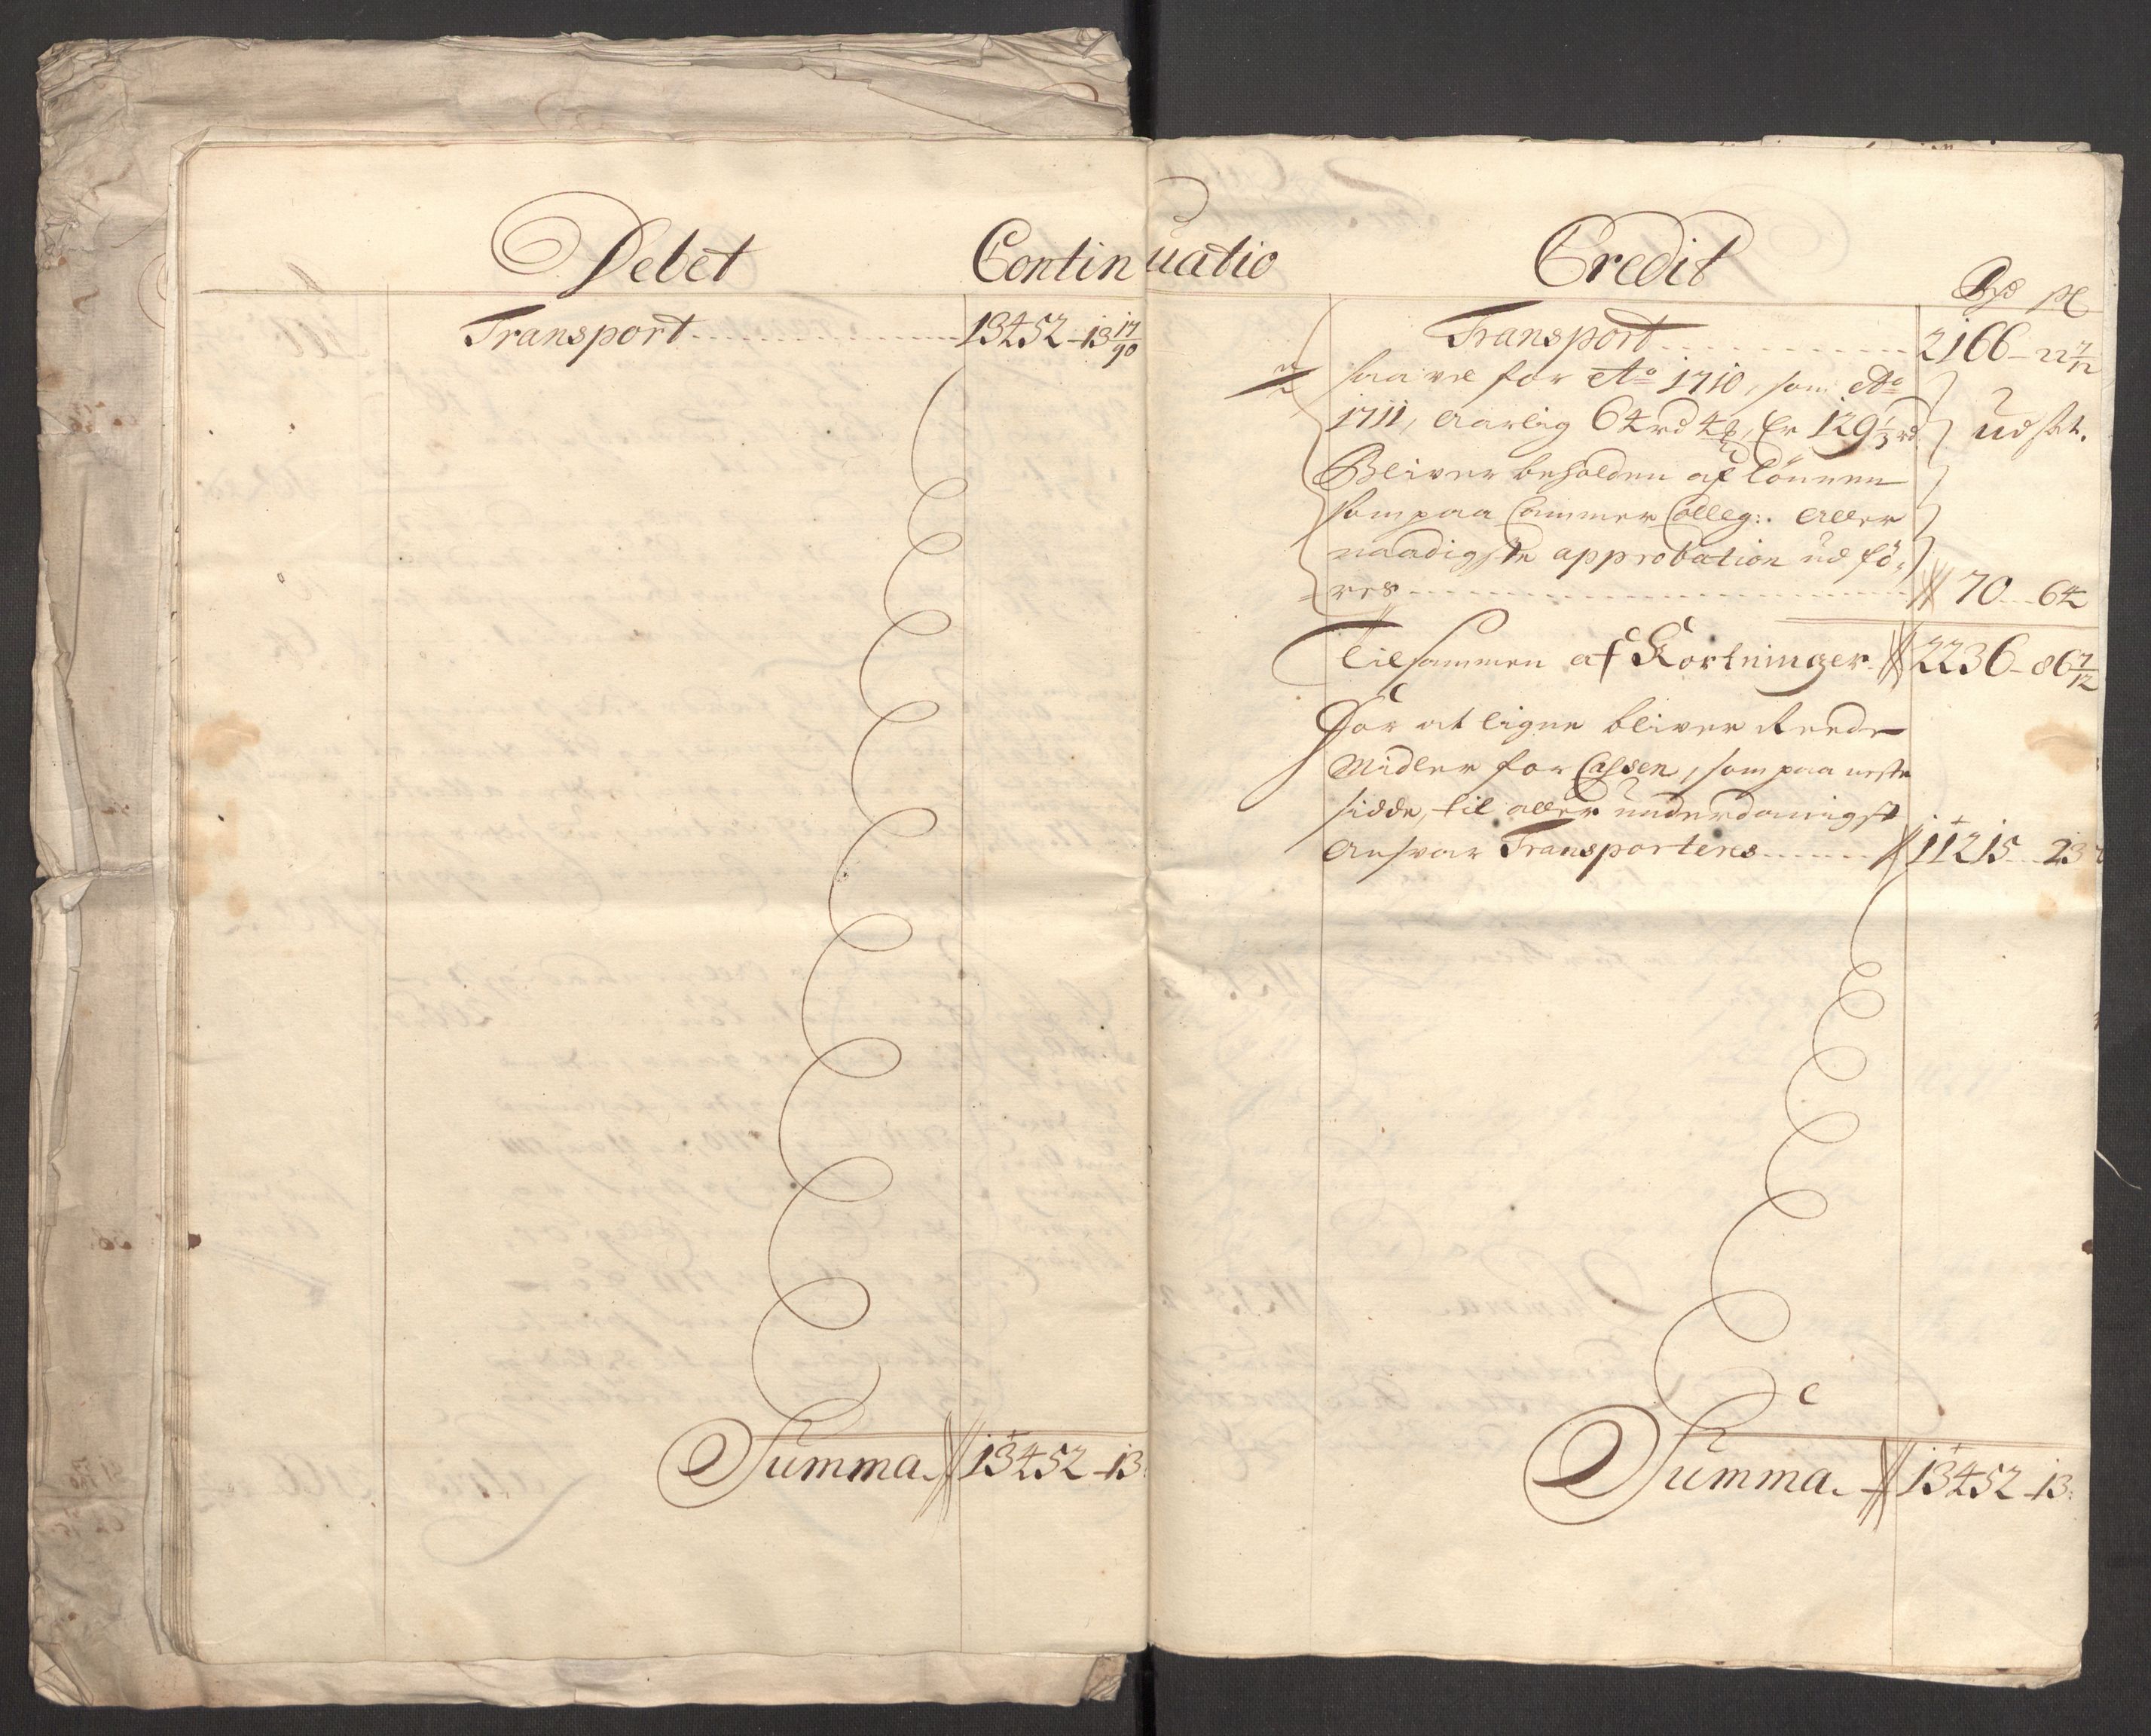 Debet
Continuatio
Transport 13452 - 13 17/90
Summa 13452 - 13
Credit
Transport 2166 - 22 7/12
saavel for Ao 1710, som Ao
1711, aarlig 64 rd 4 ß, Er 129 1/3 rd. udsat.
Bliver beholden af lönnen
som paa Cammer Colleg: aller
naadigste approbation udfö-
res 70 - 64
Tilsammen af Kortninger 2236 - 86 7/12
For at ligne bliver Reede
Midler for Cassen, som paa neste
sidde, til aller underdanigst
ansvar Transporteres 11215 - 23
Summa 13452 - 13: